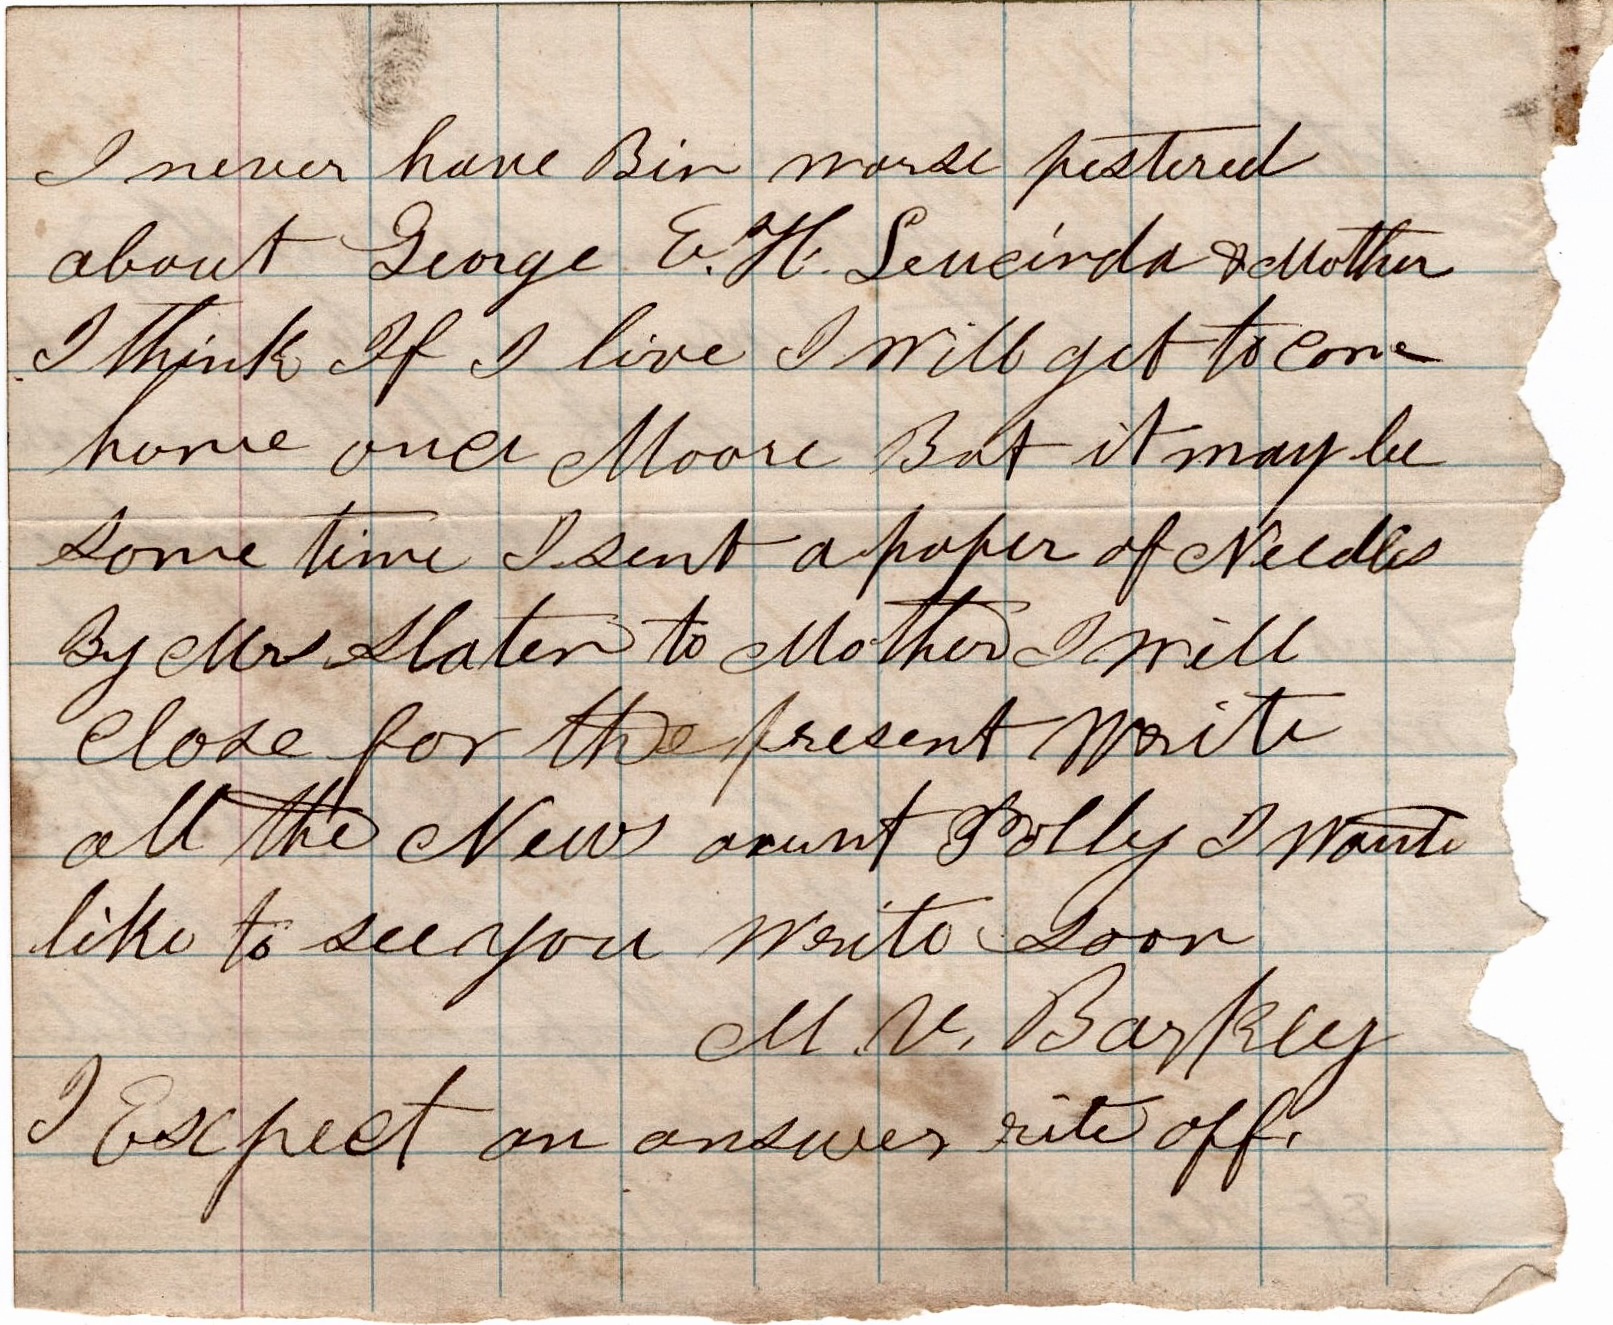 I never have Bin worse pestered
about George E. H. Leucinda & Mother
I think If I live I Will get to Come
home once Moore But it may be
some time I sent a paper of Needles
By Mrs Slater to Mother I will
Close for the present Write
all the News aunt Polly I Would
like to see you Write soon
M. V. Barkley
I Expect an answer rite off.